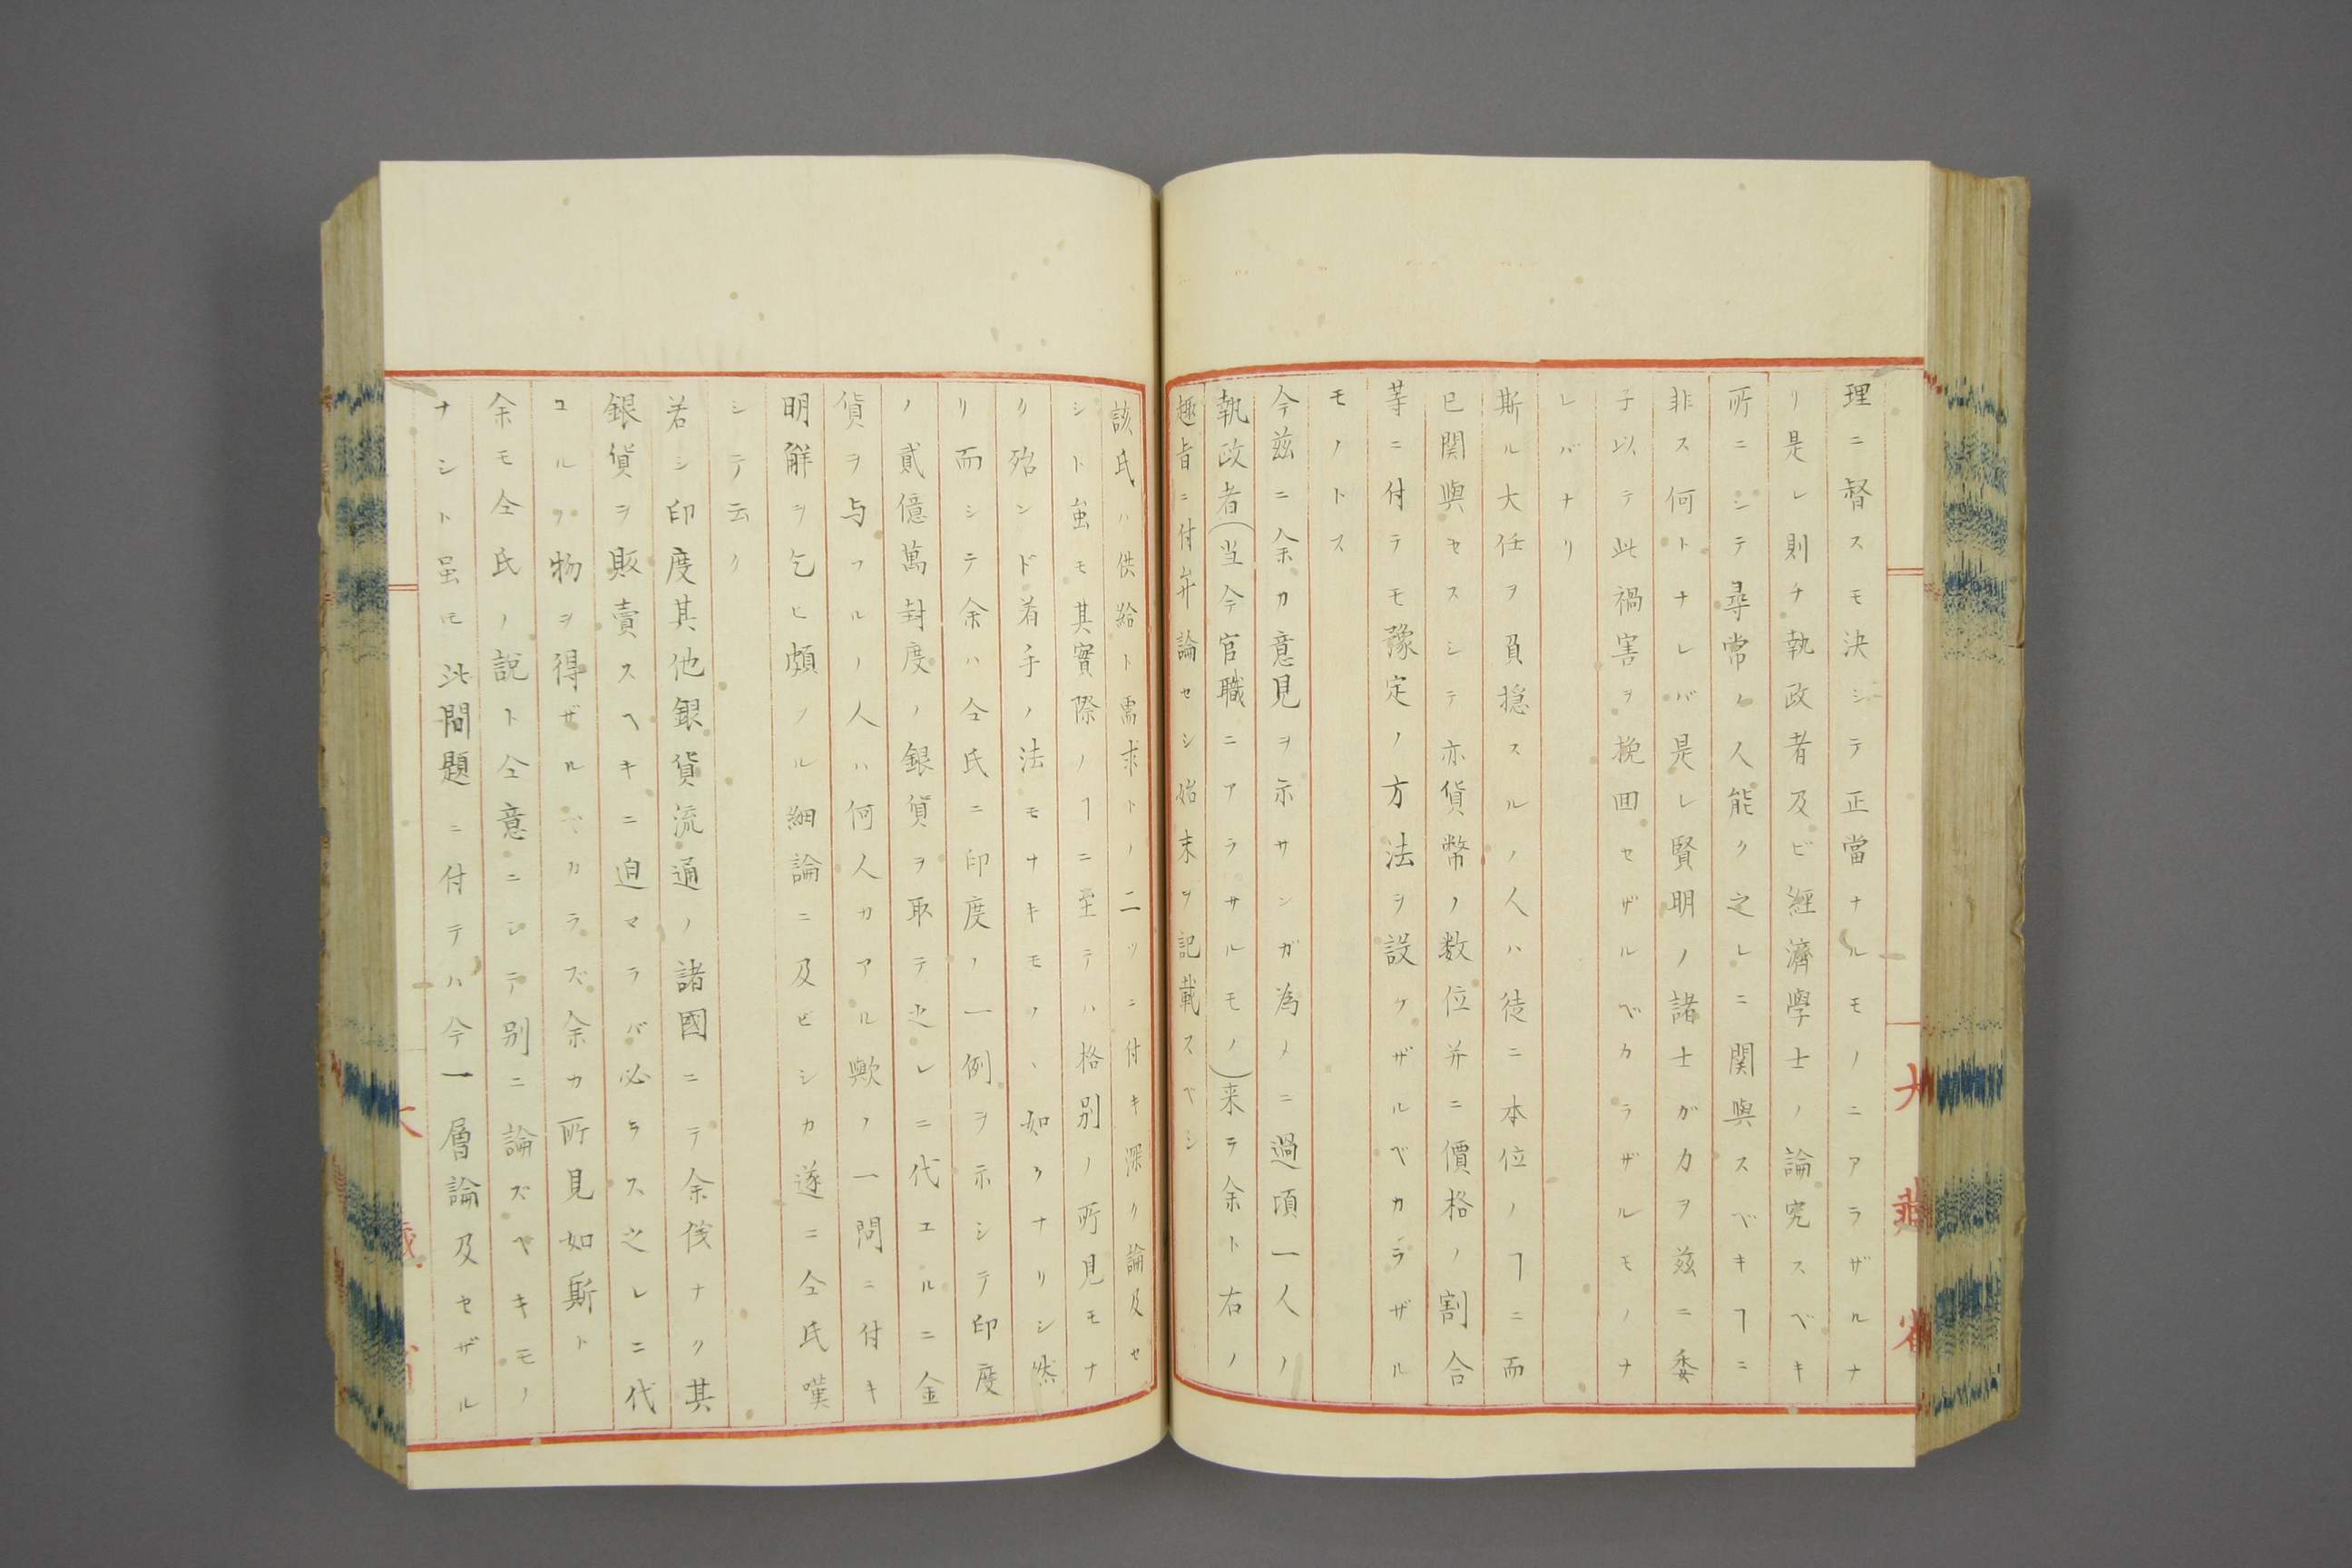 理ニ督スモ決シテ正當ナルモノニアラザルナ
リ是レ則チ執政者及ビ經濟學士ノ論究スベキ
所ニシテ尋常ノ人能ク之レニ関與スベキヿニ
非ス何トナレバ是レ賢明ノ諸士ガ力ヲ茲ニ委
子以テ此禍害ヲ挽回セザルベカラザルモノナ
レバナリ
斯ル大任ヲ負擔スルノ人ハ徒ニ本位ノヿニ而
已関與セスシテ亦貨幣ノ数位并ニ價格ノ割合
等ニ付テモ豫定ノ方法ヲ設ケザルベカラザル
モノトス
今茲ニ余カ意見ヲ示サンガ為メニ過頃一人ノ
執政者(当今官職ニアラサルモノ)来テ余ト右ノ
趣旨ニ付弁論セシ始末ヲ記載スベシ
該氏ハ供給ト需求トノ二ツニ付キ深ク論及セ
シト虽モ其實際ノヿニ至テハ格別ノ所見モナ
ク殆ンド着手ノ法モナキモノヽ如クナリシ然
リ而シテ余ハ仝氏ニ印度ノ一例ヲ示シテ印度
ノ貳億萬封度ノ銀貨ヲ取テ之レニ代ユルニ金
貨ヲ与フルノ人ハ何人カアル歟ノ一問ニ付キ
明解ヲ乞ヒ頗フル細論ニ及ビシカ遂ニ仝氏嘆
シテ云ク
若シ印度其他銀貨流通ノ諸國ニテ余儀ナク其
銀貨ヲ販賣スヘキニ迫マラバ必ラス之レニ代
ユルノ物ヲ得ザルベカラズ余カ所見如斯ト
余モ仝氏ノ説ト仝意ニシテ別ニ論ズヘキモノ
ナシト虽モ此問題ニ付テハ今一層論及セザル
大藏省